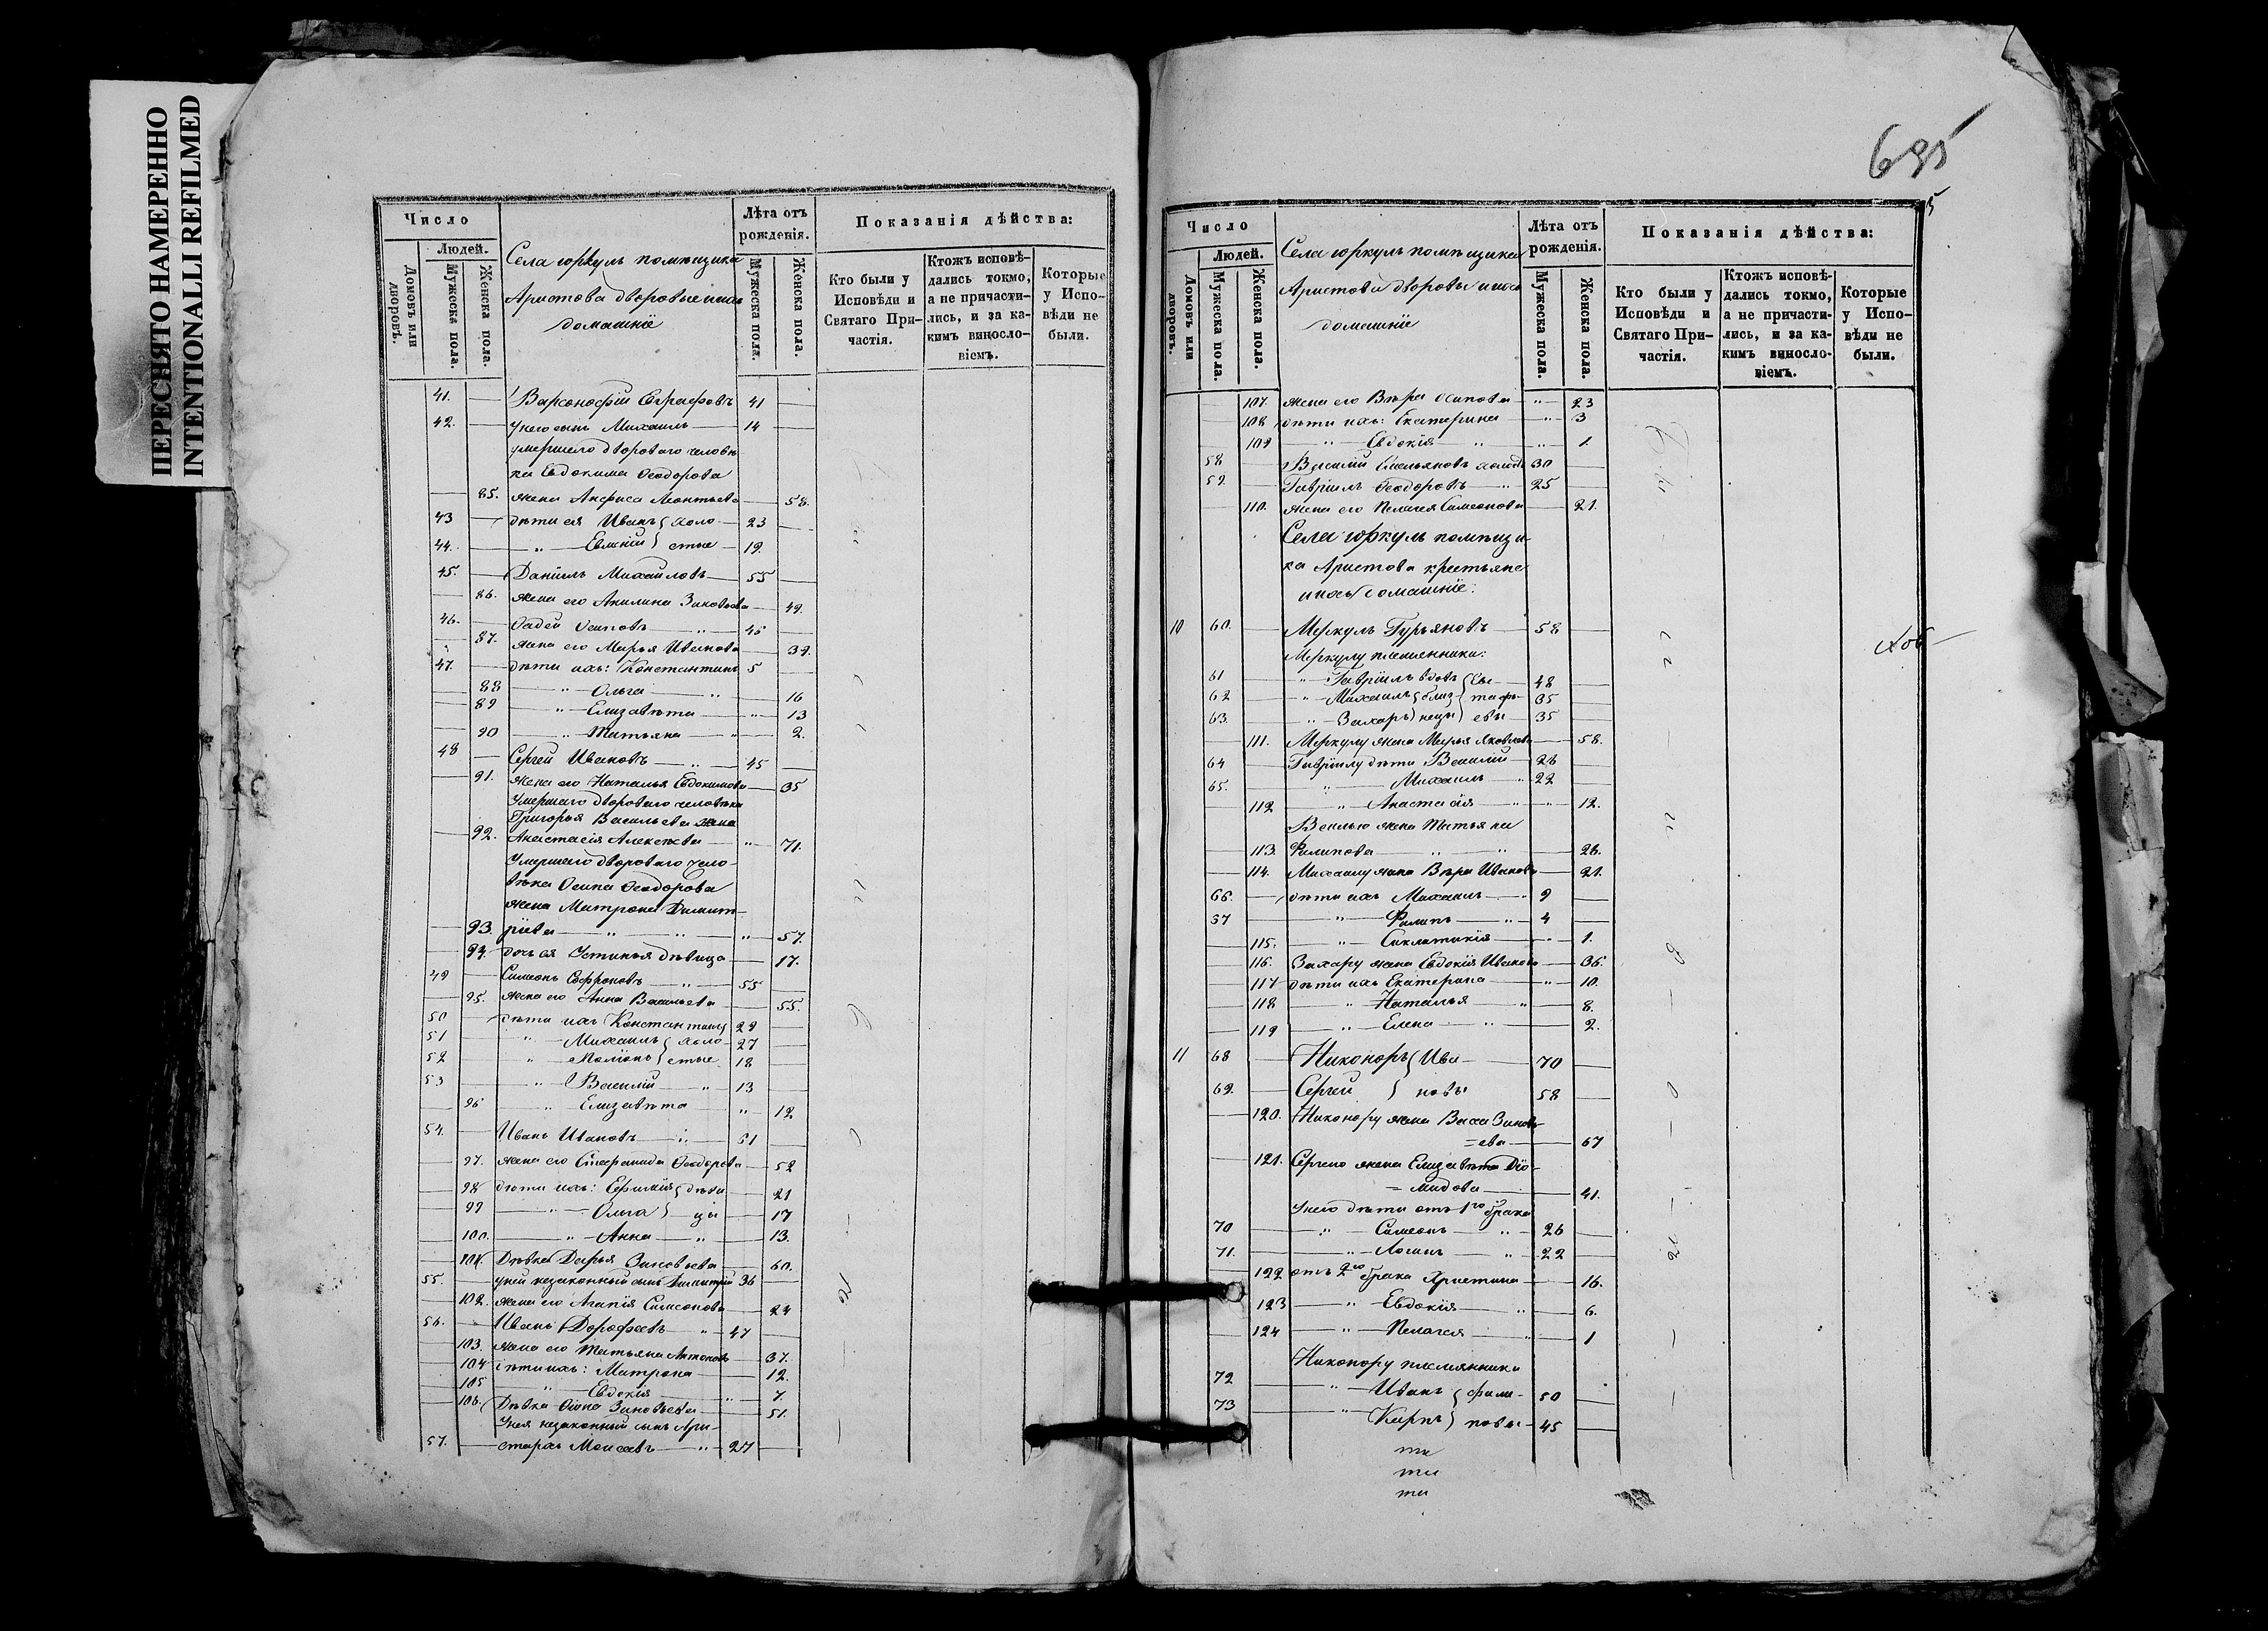 ПЕРЕСНЯТО НАМЕРЕННО
INTENTIONALLI REFILMED
Число
Людей.
Домовъ или дворовъ.
Мужеска пола.
Женска пола.
Села Юркуль помѣщика
Аристова дворовые ихъ
домашніе
Лѣта отъ рожденія.
Мужеска пола.
Женска пола.
Показанія дѣйства:
Кто были у Исповѣди и Святаго Причастія.
Ктожъ исповѣдались токмо, а не причастились, и за какимъ винословіемъ.
Которые у Исповѣди не были.
41. Варсонофій Евграфовъ 41
42. У него сынъ Михаилъ 14
умершего двороваго человѣ
ка Евдокима Ѳеодорова
85. жена Анфиса Леонтьева 58.
43 дѣти ея Иванъ холо- 23
44. " Евмѣній стые 19.
45. Даніилъ Михайловъ 55
86. жена его Акилина Зиновьева 49.
46. Ѳадей Осиповъ " 45
87. жена его Марья Иванова 39.
47. дѣти ихъ: Константинъ 5
88 " Ольга " 16
89 " Елизавѣта " 13
90 " Татьяна " 2.
48 Сергей Ивановъ " 45
91. жена его Наталья Евдокимова 35
Умершаго двороваго человѣка
Григорья Васильева жена
92. Анастасія Алексѣева " 71.
Умершего двороваго чело-
вѣка Осипа Ѳеодорова
жена Матрона Димит-
93. ріева " " " 57.
94. дочь ея Устинья дѣвица 17.
49 Симеонъ Софроновъ " 55
95. жена его Анна Васильева 55.
50 дѣти ихъ Константинъ 29
51 " Михаилъ холо- 27
52 " стые 18
53 " Василій " 13
96 " Елизавѣта " 12
54. Иванъ Ивановъ " 51
97. жена его Стефанида Ѳеодорова 52
98 дѣти ихъ: Ефимія дѣви 21
99 " Ольга цы 17
100. " Анна " 13.
101. Дѣвка Дарья Зиновьева 60.
55. у ней незаконный сынъ Димитрій 36
102. жена его Агапія Симеонова 24
56. Иванъ Дорофеевъ " 47
103. жена его Татьяна Антонова 37.
104 дѣти ихъ: Матрона 12.
105 " Евдокія " 7.
106. Дѣвка Зиновьева 51.
У нея незаконный сынъ Ари-
57. стархъ Моисеевъ " 27
695
5
Число
Людей.
Домовъ или дворовъ.
Мужеска пола.
Женска пола.
Села Юркуль помѣщика
Аристова дворовые ихъ
домашніе
Лѣта отъ рожденія.
Мужеска пола.
Женска пола.
Показанія дѣйства:
Кто были у Исповѣди и Святаго Причастія.
Ктожъ исповѣдались токмо, а не причастились, и за какимъ винословіемъ.
Которые у Исповѣди не были.
107. жена его Вѣра Осипова " 23
108 дѣти ихъ: Екатерина " 3
109 " Евдокія " " 1.
58 Василій Емельяновъ холост 30
59. Гавріилъ Ѳеодоровъ " 25
110. жена его Пелагея Симеонова 21.
Села Юркуль помѣщи
ка Аристова крестьяне
ихъ домашніе:
10 60. Меркулъ Гурьяновъ 58
Меркулу племянники:
61 " Гавріилъ вдовъ Ев 48
62 " Михаилъ близ- стафь- 35
63. " Захаръ нецы евы 35
111. Меркулу жена Марья Яковлева 58.
64 Гаврілу дѣти Василій 26
65. " Михаилъ " 22
112 " Анастасія " " 12.
Василью жена Татьяна
113. Филипова " " 26.
114. Михаилу жена Вѣра Иванова 21.
66. дѣти ихъ Михаилъ " 9
67 " Филипъ " 4
115. " Синклитикія " 1.
116. Захару жена Евдокія Иванова 36.
117 дѣти ихъ Екатерина " 10.
118 " Наталья " 8.
119 " Елена " 2.
11 68 Никоноръ Ива 70
69. Сергей новы 58
120. Никонору жена Васса Зиновь
=ева 67
121. Сергею жена Елизавѣта Діо-
=мидова 41.
У него дѣти отъ 1го брака
70 " Симеонъ " 26
71. " Логинъ " 22
122 отъ 2го брака Христина 16.
123 " Евдокія " 6.
124 " Пелагея " 1
Никонору племянники
72 " Иванъ фили- 50
73 " Карпъ повы 45